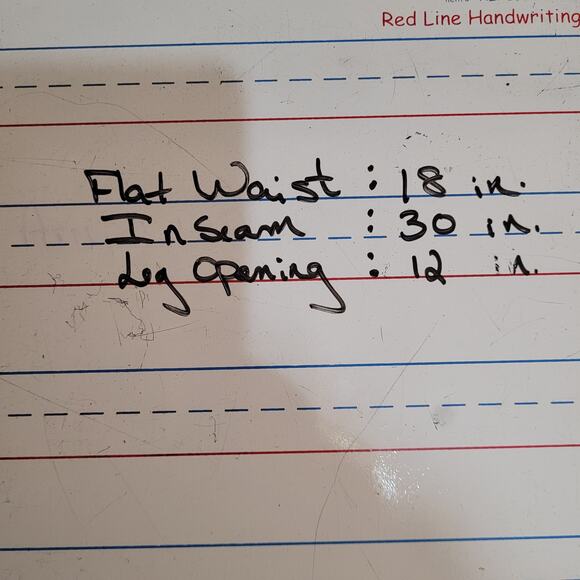 Red Line Handwriting
Flat Waist : 18 in.
Inseam : 30 in.
Leg Opening : 12 in.